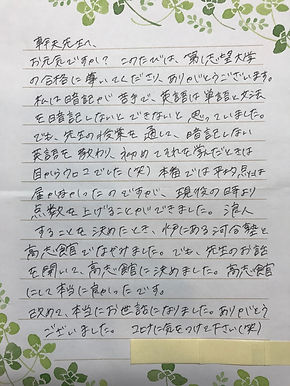 幹夫先生へ
お元気ですか？このたびは、第1志望大学
の合格に導いてくださり、ありがとうございます。
私は暗記が苦手で、英語は単語と文法
を暗記しないとできないと思っていました。
でも、先生の授業を通して、暗記しない
英語を教わり、初めてそれを学んだときは
目からウロコでした(笑) 本番では平均点は
届かなかったのですが、現役の時より
点数を上げることができました。浪人
することを決めたとき、にある河合塾と
高志館でなやみました。でも、先生のお話
を聞いて、高志館に決めました。高志館
にして本当に良かったです。
改めて、本当にお世話になりました。ありがとう
ございました。コロナに気をつけて下さい(笑)